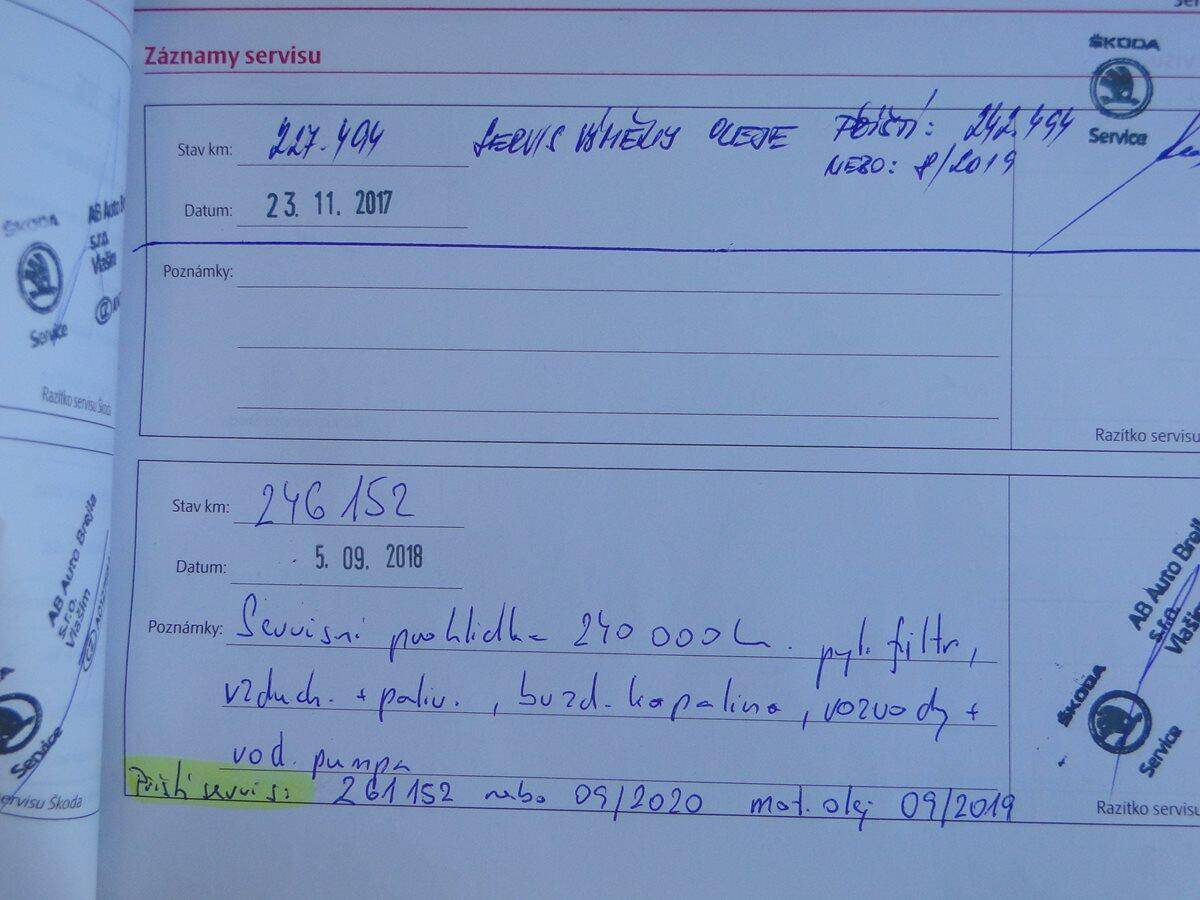 Záznamy servisu
ŠKODA
Service
Stav km: 227.494 SERVIS VÝMĚNY OLEJE PŘÍŠTÍ: 242.494
NEBO: 8/2019
Datum: 23. 11. 2017
Poznámky:
Razítko servisu
ŠKODA
Service
AB Auto
s.r.o.
Vlašim
Razítko servisu Škoda
Stav km: 246 152
Datum: 5. 09. 2018
Poznámky: Servisní prohlídka 240 000 pyl. filtr,
vzduch. + paliv., brzd. kapalina, rozvody +
vod. pumpa
Příští servis: 261 152 nebo 09/2020 mot. olej 09/2019
AB Auto
s.r.o.
ŠKODA
Service
Razítko servisu
AB Auto Brejla
s.r.o.
Vlašim
Service
servisu Škoda